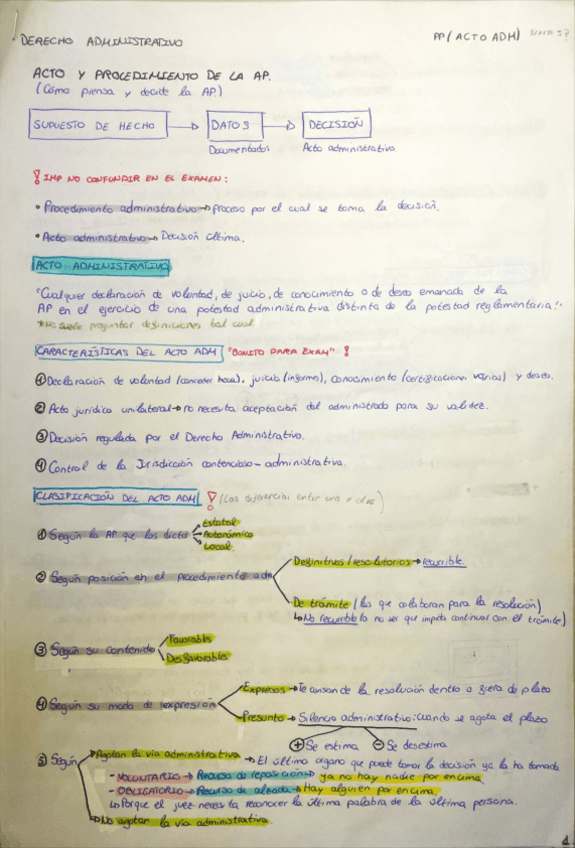 DERECHO ADMINISTRATIVO
PP (ACTO ADM)
ACTO Y PROCEDIMIENTO DE LA AP.
(Cómo piensa y decide la AP)
SUPUESTO DE HECHO → DATOS → DECISIÓN
Documentados Acto administrativo
! IMP NO CONFUNDIR EN EL EXAMEN:
• Procedimiento administrativo → proceso por el cual se toma la decisión.
• Acto administrativo → Decisión última.
ACTO ADMINISTRATIVO
"Cualquier declaración de voluntad, de juicio, de conocimiento o de deseo emanada de la
AP en el ejercicio de una potestad administrativa distinta de la potestad reglamentaria!"
*No suele preguntar definiciones tal cual
CARACTERÍSTICAS DEL ACTO ADM "BONITO PARA EXAM" !
① Declaración de voluntad (conceder beca), juicio (informes), conocimiento (certificaciones varias) y deseo.
② Acto jurídico unilateral → no necesita aceptación del administrado para su validez.
③ Decisión regulada por el Derecho Administrativo.
④ Control de la Jurisdicción contencioso-administrativa.
CLASIFICACIÓN DEL ACTO ADM ! (Las diferencias entre uno y otro)
① Según la AP que los dicta
Estatal
Autonómico
Local
② Según posición en el procedimiento adm
Definitivos/resolutorios → recurrible.
De trámite (los que colaboran para la resolución)
↳ No recurrible (a no ser que impida continuar con el trámite)
③ Según su contenido
Favorables
Desfavorables
④ Según su modo de expresión
Expresos → Te avisan de la resolución dentro o fuera de plazo
Presunto → Silencio administrativo: cuando se agota el plazo
+ Se estima - Se desestima
⑤ Según
Agotan la vía administrativa → El último órgano que puede tomar la decisión ya la ha tomado
- VOLUNTARIO → Recurso de reposición → ya no hay nadie por encima
- OBLIGATORIO → Recurso de alzada → Hay alguien por encima.
↳ Porque el juez necesita reconocer la última palabra de la última persona.
No agotan la vía administrativa.
1